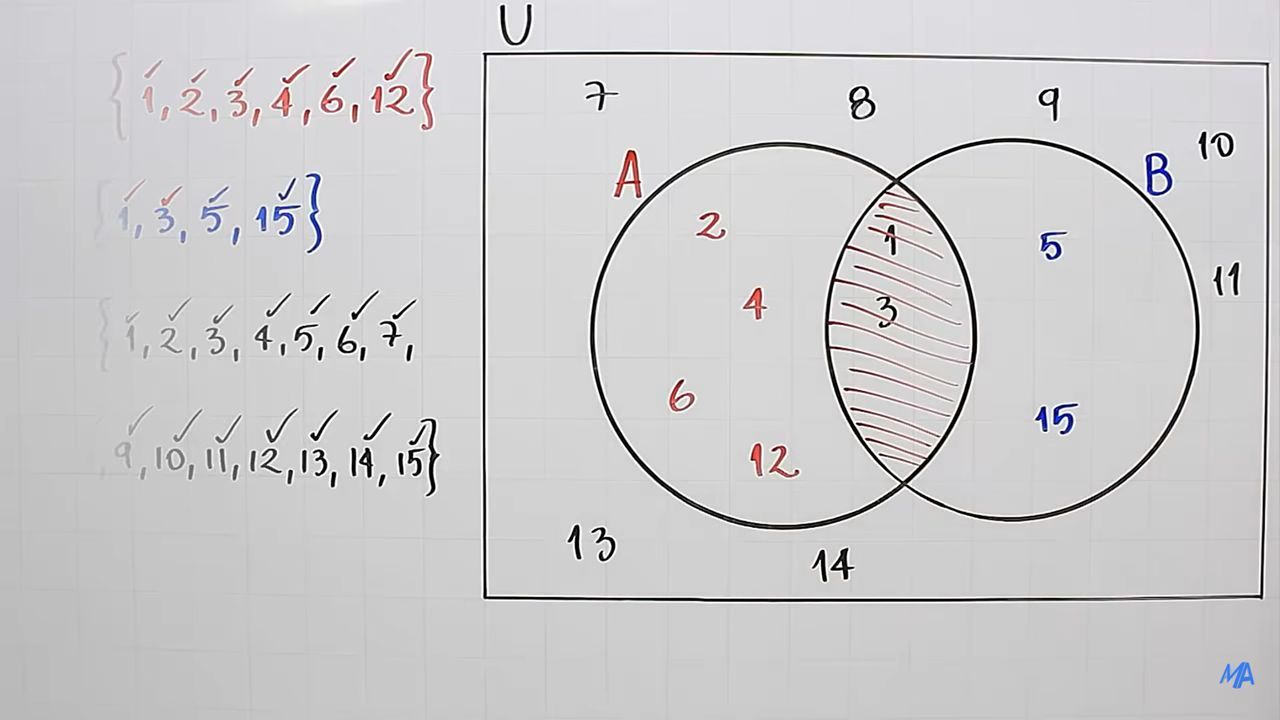 {1, 2, 3, 4, 6, 12}
{1, 3, 5, 15}
{1, 2, 3, 4, 5, 6, 7,
, 9, 10, 11, 12, 13, 14, 15}
U
7 8 9
10
A B
2 1 5
11
4 3
6 15
12
13 14
MA